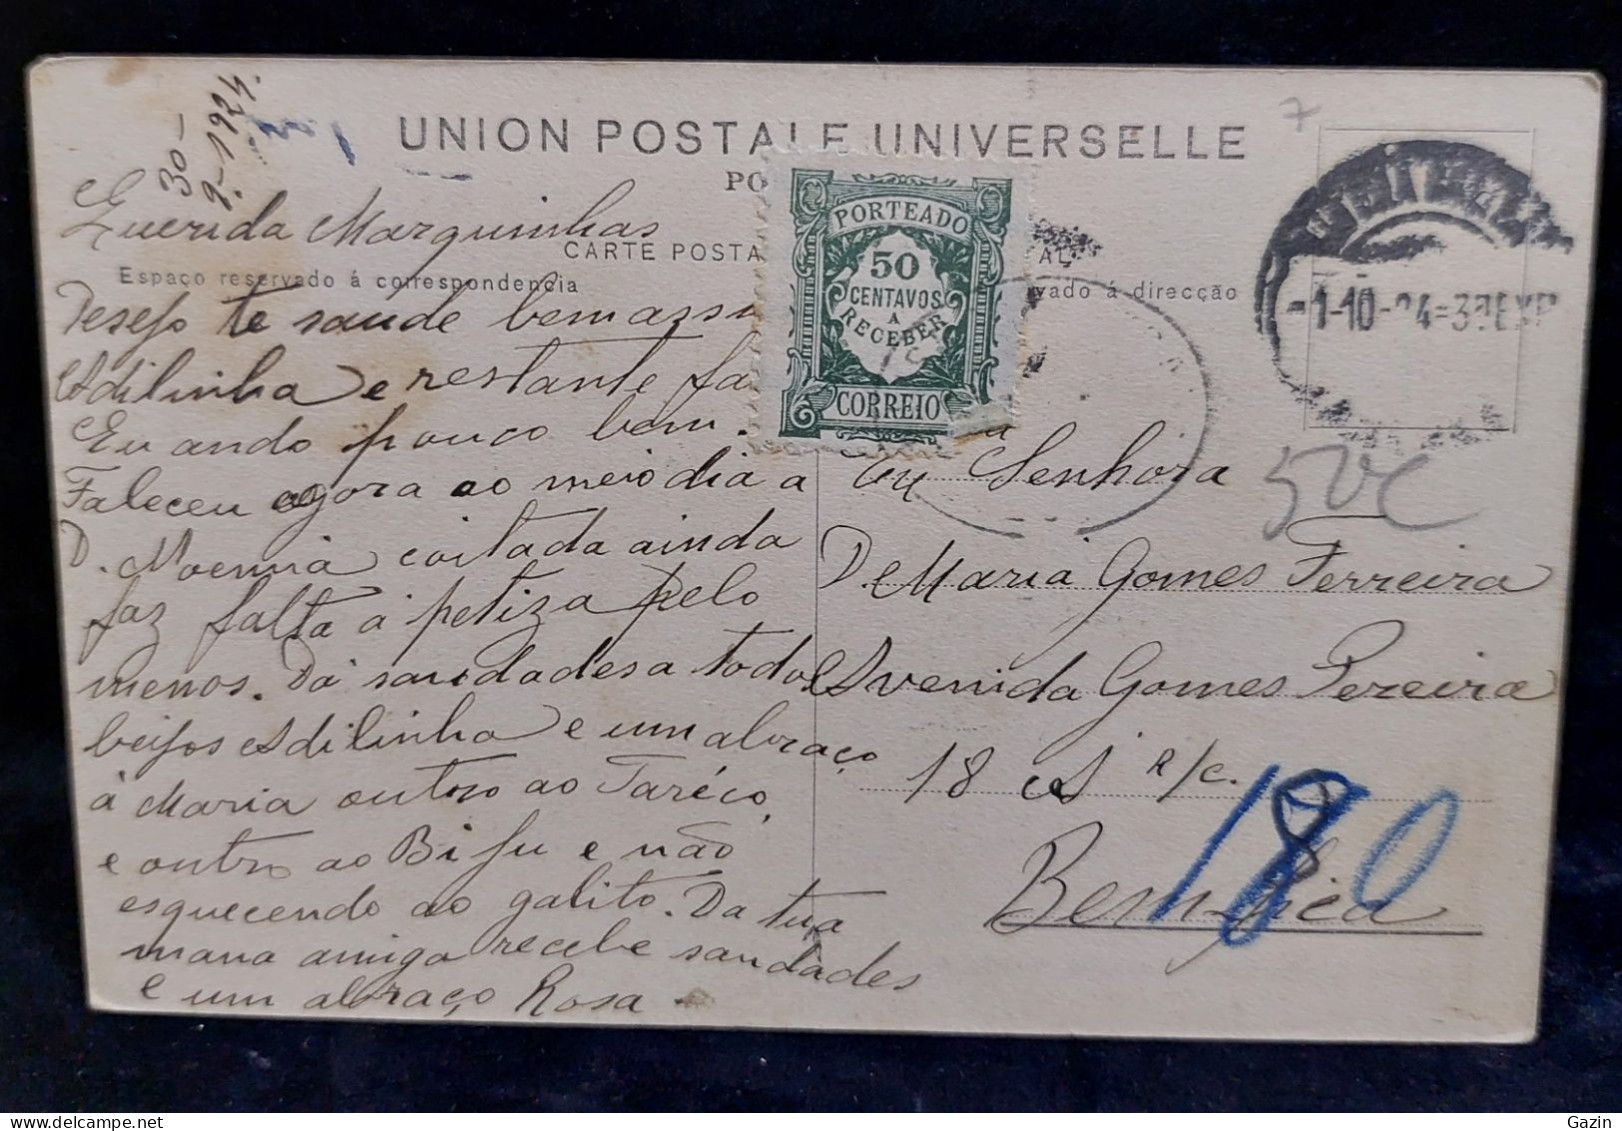 30-
9-1924.
UNION POSTALE UNIVERSELLE
PO
CARTE POSTA
AL
Espaço reservado á correspondencia
vado á direcção
PORTEADO
50
CENTAVOS
A
RECEBER
CORREIO
-1-10-24-3
7
50c
180
Querida Marquinhas
Desejo te saúde bem assi
Adilinha e restante fa
Eu ando pouco bem.
Faleceu agora ao meio dia a
D. Noemia coitada ainda
faz falta á petiza pelo
menos. Dá saudades a todos
beijos Adilinha e um abraço
á Maria outro ao Taréco,
e outro ao Bifu e não
esquecendo ao galito. Da tua
mana amiga recebe saudades
e um abraço Rosa
Senhora
D. Maria Gomes Ferreira
Avenida Gomes Pereira
18 A R/c.
Bemfica
Gazin